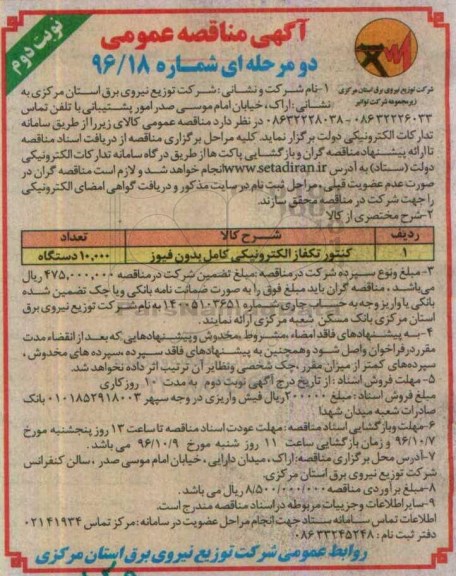 نوبت دوم
آگهی مناقصه عمومی
دو مرحله ای شماره ۹۶/۱۸
شرکت توزیع نیروی برق استان مرکزی
زیرمجموعه شرکت توانیر
۱-نام شرکت و نشانی: شرکت توزیع نیروی برق استان مرکزی به
نشانی: اراک، خیابان امام موسی صدر امور پشتیبانی با تلفن تماس
۰۸۶۳۲۲۲۶۰۳۳ - ۰۸۶۳۲۲۲۸۰۳۸ در نظر دارد مناقصه عمومی کالای زیر را از طریق سامانه
تدارکات الکترونیکی دولت برگزار نماید. کلیه مراحل برگزاری مناقصه از دریافت اسناد مناقصه
تا ارائه پیشنهاد مناقصه گران و بازگشایی پاکت ها از طریق درگاه سامانه تدارکات الکترونیکی
دولت (ستاد) به آدرس www.setadiran.ir انجام خواهد شد و لازم است مناقصه گران در
صورت عدم عضویت قبلی، مراحل ثبت نام در سایت مذکور و دریافت گواهی امضای الکترونیکی
را جهت شرکت در مناقصه محقق سازند.
۲-شرح مختصری از کالا
ردیف شرح کالا تعداد
۱ کنتور تکفاز الکترونیکی کامل بدون فیوز ۱۰,۰۰۰ دستگاه
۳- مبلغ و نوع سپرده شرکت در مناقصه : مبلغ تضمین شرکت در مناقصه ۴۷۵,۰۰۰,۰۰۰ ریال
می‌باشد، مناقصه گران باید مبلغ فوق را به صورت ضمانت نامه بانکی و یا چک تضمین شده
بانکی یا واریز وجه به حساب جاری شماره ۱۴۰۰۵۱۰۳۶۵۱ به نام شرکت توزیع نیروی برق
استان مرکزی بانک مسکن شعبه مرکزی ارائه نمایند.
۴-به پیشنهادهای فاقد امضاء، مشروط، مخدوش و پیشنهادهایی که بعد از انقضاء مدت
مقرر در فراخوان واصل شود و همچنین به پیشنهادهای فاقد سپرده، سپرده های مخدوش،
سپرده‌های کمتر از میزان مقرر، چک شخصی و نظایر آن ترتیب اثر داده نخواهد شد.
۵-مهلت فروش اسناد : از تاریخ درج آگهی نوبت دوم به مدت ۱۰ روز کاری
مبلغ فروش اسناد : مبلغ ۲۰۰۰۰۰ ریال فیش واریزی در وجه سپهر ۰۱۰۱۸۵۲۹۱۸۰۰۳ بانک
صادرات شعبه میدان شهدا
۶-مهلت و بازگشایی اسناد مناقصه : مهلت عودت اسناد مناقصه تا ساعت ۱۳ روز پنجشنبه مورخ
۹۶/۱۰/۷ و زمان بازگشایی ساعت ۱۱ روز شنبه مورخ ۹۶/۱۰/۹ می باشد.
۷-آدرس محل برگزاری مناقصه: اراک، میدان دارایی، خیابان امام موسی صدر، سالن کنفرانس
شرکت توزیع نیروی برق استان مرکزی.
۸-مبلغ برآوردی مناقصه ۸/۵۰۰/۰۰۰/۰۰۰ ریال می باشد.
۹-سایر اطلاعات و جزییات مربوطه در اسناد مناقصه مندرج است.
اطلاعات تماس سامانه ستاد جهت انجام مراحل عضویت در سامانه : مرکز تماس ۰۲۱۴۱۹۳۴
دفتر ثبت نام : ۰۸۶۳۳۲۴۵۲۴۸
روابط عمومی شرکت توزیع نیروی برق استان مرکزی